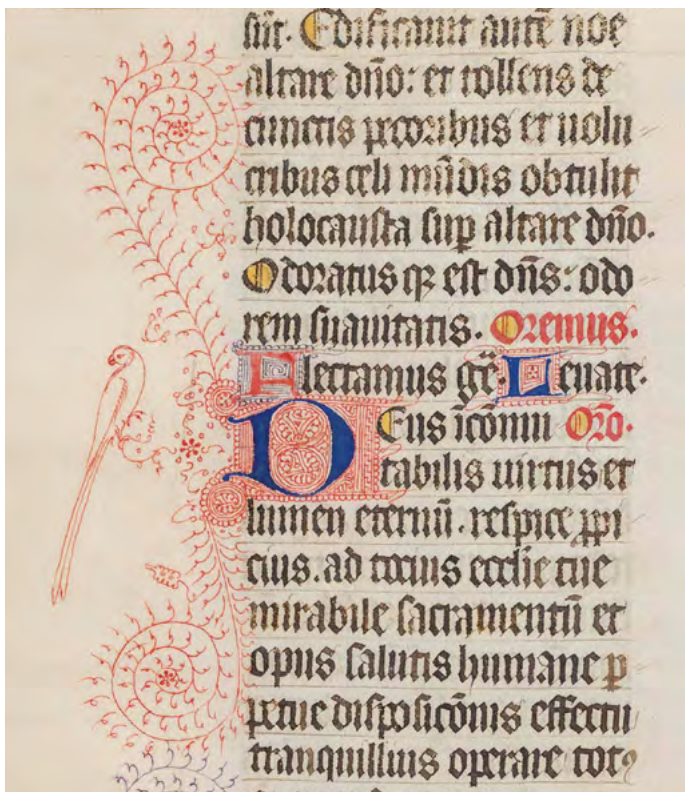 sūt. Edificauit autē noe
altare dño: et tollens de
cunctis pecoribus et uolu
cribus celi mūdis obtulit
holocausta sup altare dño.
Odoratus qȝ est dñs: odo
rem suauitatis. Oremus.
Flectamus gē. Leuate.
Deus īcōmu Orō.
tabilis uirtus et
lumen eternū. respice ꝓpi
cius. ad tocius ecclie tue
mirabile sacramentū et
opus salutis humane p
petue disposicōnis effectu
tranquillius operare totꝰ